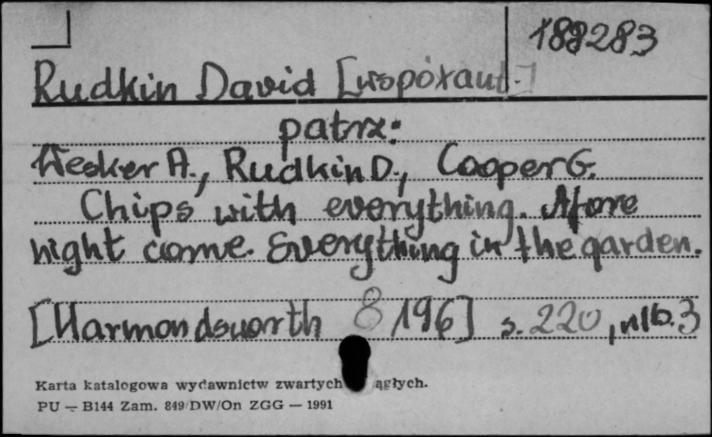 188283
Rudkin David [współaut.]
patrz:
Wesker A., Rudkin D., Cooper G.
Chips with everything. Afore
night come. Everything in the garden.
[Harmondsworth 8 196] s. 220, nlb. 3
Karta katalogowa wydawnictw zwartych ągłych.
PU — B144 Zam. 849/DW/On ZGG — 1991